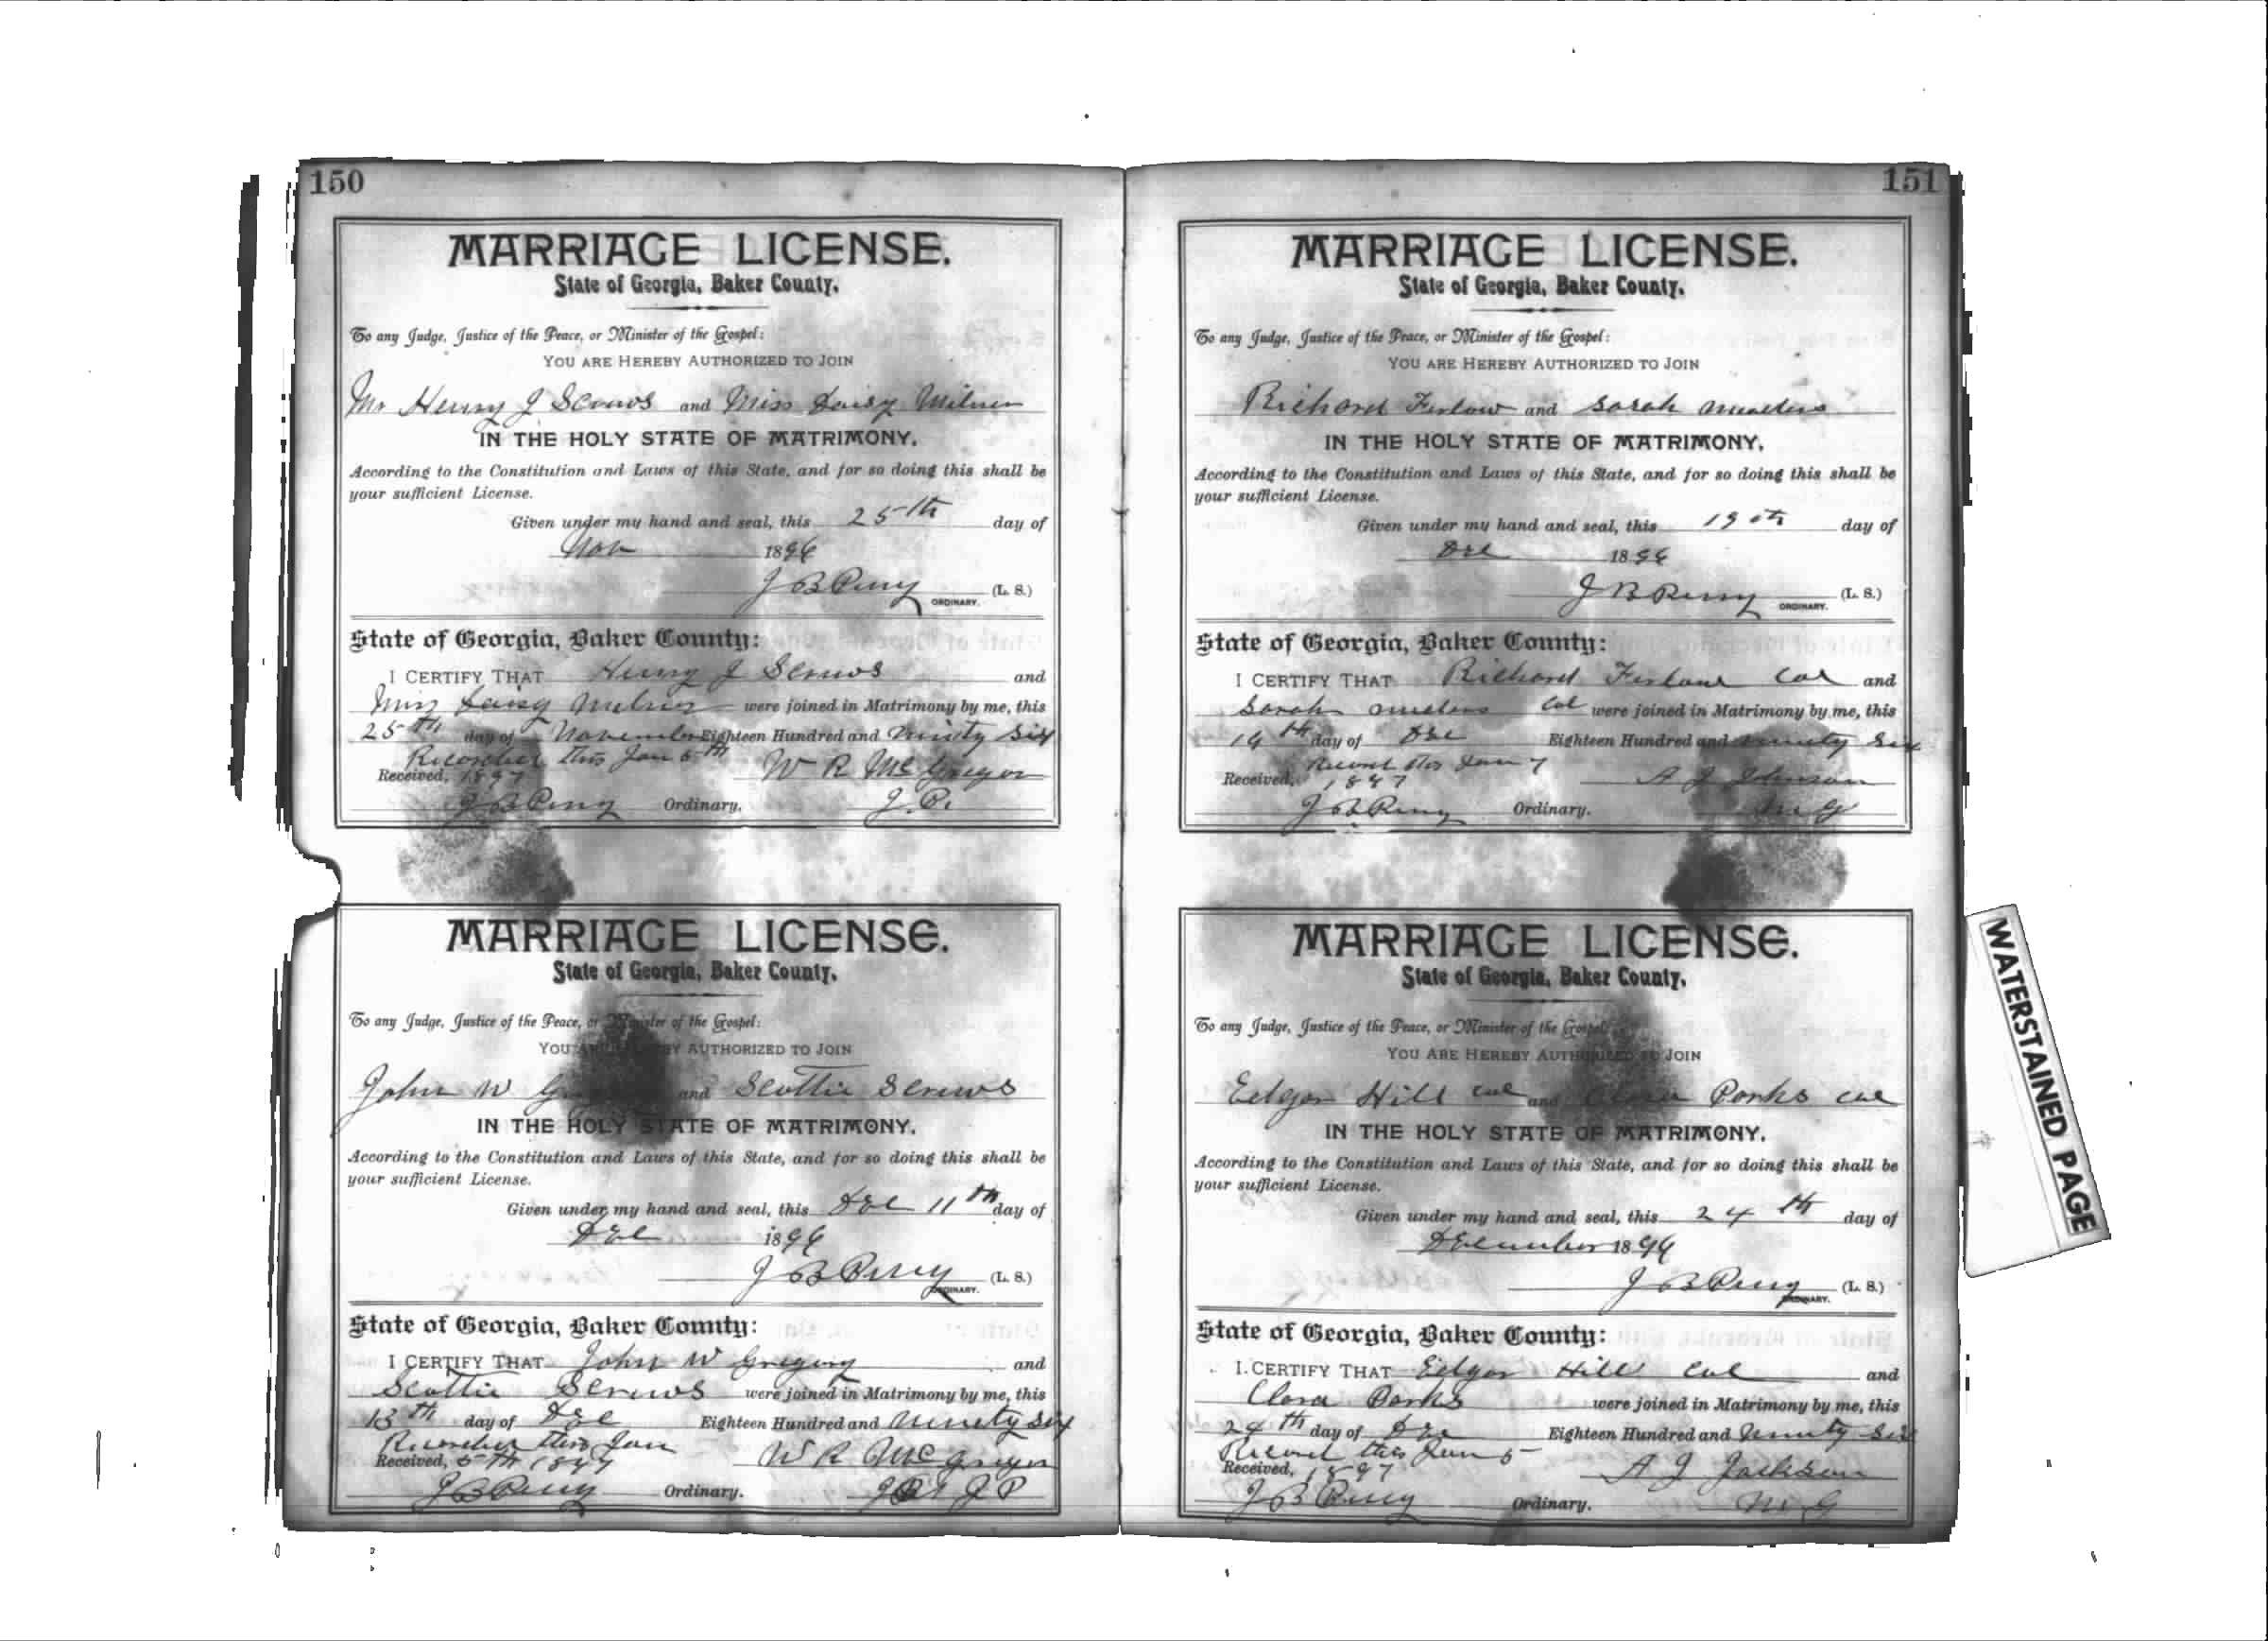 150
MARRIAGE LICENSE.
State of Georgia, Baker County.
To any Judge, Justice of the Peace, or Minister of the Gospel:
YOU ARE HEREBY AUTHORIZED TO JOIN
Mr Henry J Screws and Miss Daisy Milner
IN THE HOLY STATE OF MATRIMONY.
According to the Constitution and Laws of this State, and for so doing this shall be
your sufficient License.
Given under my hand and seal, this 25th day of
Nov 1896
J B Perry (L. S.)
ORDINARY.
State of Georgia, Baker County:
I CERTIFY THAT Henry J Screws and
Miss Daisy Milner were joined in Matrimony by me, this
25th day of November Eighteen Hundred and Ninety Six
Recorded this Jan 5th
Received, 1897 W R McGregor
J B Perry Ordinary. J. P.
MARRIAGE LICENSE.
State of Georgia, Baker County.
To any Judge, Justice of the Peace, or Minister of the Gospel:
YOU AUTHORIZED TO JOIN
John W and Scottie Screws
IN THE HOLY STATE OF MATRIMONY.
According to the Constitution and Laws of this State, and for so doing this shall be
your sufficient License.
Given under my hand and seal, this Dec 11th day of
Dec 1896
J B Perry (L. S.)
ORDINARY.
State of Georgia, Baker County:
I CERTIFY THAT John W Gregory and
Scottie Screws were joined in Matrimony by me, this
13th day of Dec Eighteen Hundred and Ninety Six
Recorded this Jan
Received, 5th 1897 W R McGregor
J B Perry Ordinary. J P
151
MARRIAGE LICENSE.
State of Georgia, Baker County.
To any Judge, Justice of the Peace, or Minister of the Gospel:
YOU ARE HEREBY AUTHORIZED TO JOIN
Richard and Sarah
IN THE HOLY STATE OF MATRIMONY.
According to the Constitution and Laws of this State, and for so doing this shall be
your sufficient License.
Given under my hand and seal, this day of
Dec 1896
J B Perry (L. S.)
ORDINARY.
State of Georgia, Baker County:
I CERTIFY THAT Richard col and
Sarah col were joined in Matrimony by me, this
day of Dec Eighteen Hundred and ninety Six
Record this Jan 7
Received, 1897 A J Johnson
J B Perry Ordinary. M G
MARRIAGE LICENSE.
State of Georgia, Baker County.
To any Judge, Justice of the Peace, or Minister of the Gospel:
YOU ARE HEREBY AUTHORIZED TO JOIN
Edgar Hill col and Clora Parks col
IN THE HOLY STATE OF MATRIMONY.
According to the Constitution and Laws of this State, and for so doing this shall be
your sufficient License.
Given under my hand and seal, this 24th day of
December 1896
J B Perry (L. S.)
ORDINARY.
State of Georgia, Baker County:
I CERTIFY THAT Edgar Hill col and
Clora Parks were joined in Matrimony by me, this
24th day of Dec Eighteen Hundred and Ninety Six
Record this Jan 5
Received, 1897 A J Jackson
J B Perry Ordinary. M G
WATERSTAINED PAGE